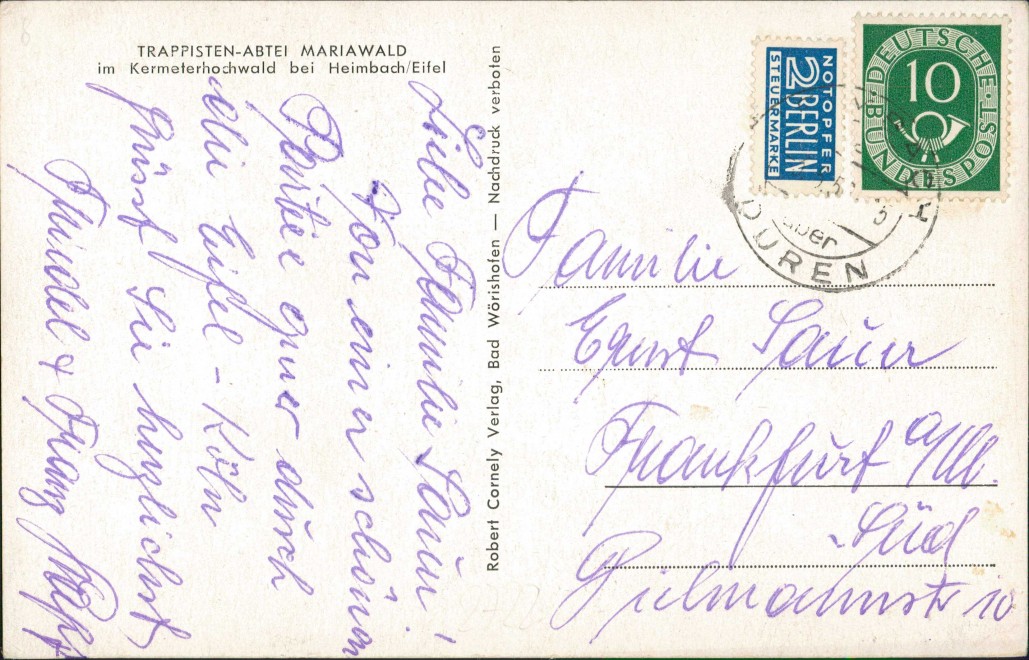 TRAPPISTEN-ABTEI MARIAWALD
im Kermeterhochwald bei Heimbach/Eifel
Liebe Familie Sauer!
Von einer schönen
Partie quer durch
die Eifel - Köln
grüsst Sie herzlichst
Robert Cornely Verlag, Bad Wörishofen — Nachdruck verboten
NOTOPFER
2 BERLIN
STEUERMARKE
DEUTSCHE BUNDESPOST
10
über
DÜREN
Familie
Ernst Sauer
Frankfurt a/M.
Süd